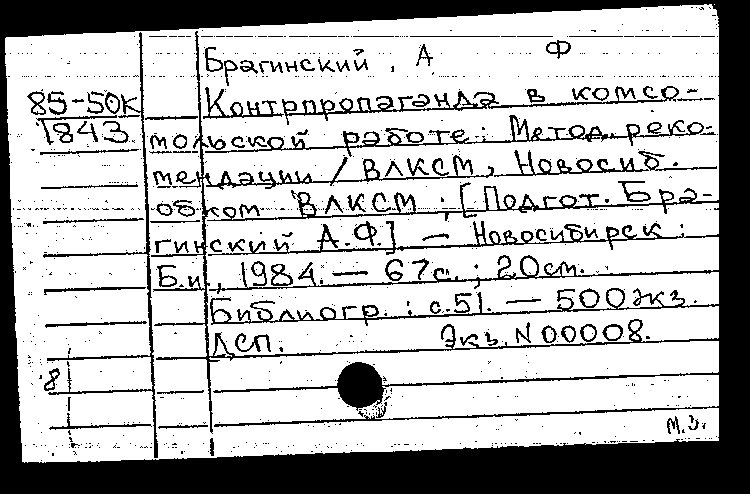 Брагинский, А Ф
85-50к
1843
Контрпропаганда в комсо-
мольской работе: Метод. реко-
мендации / ВЛКСМ, Новосиб.
обком ВЛКСМ ; [Подгот. Бра-
гинский А.Ф.]. — Новосибирск :
Б.и., 1984. — 67с. ; 20см.
Библиогр. : с.51. — 500экз.
ДСП. Экз. N 00008.
8